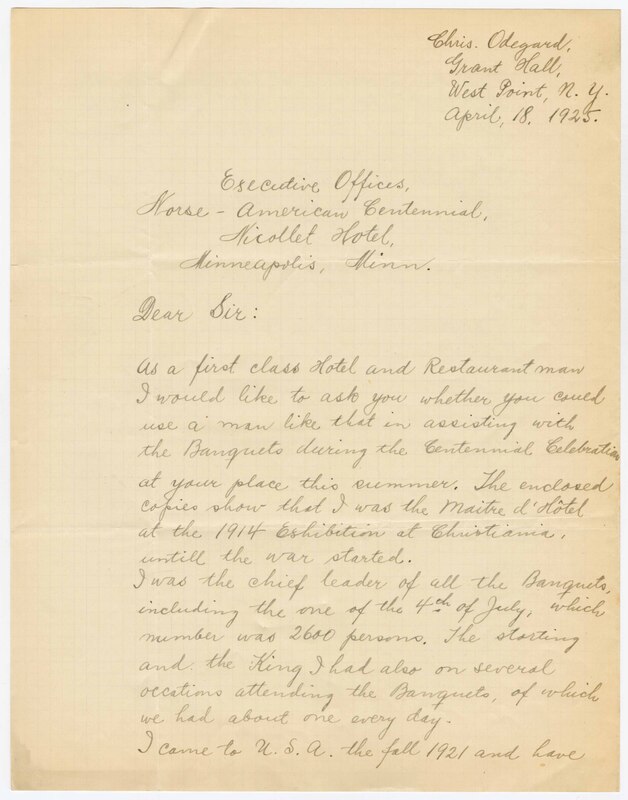 Chris. Odegard,
Grant Hall,
West Point, N. Y.
April, 18, 1925.
Executive Offices,
Norse - American Centennial,
Nicollet Hotel,
Minneapolis, Minn.
Dear Sir:
As a first class Hotel and Restaurant man
I would like to ask you whether you could
use a man like that in assisting with
the Banquets during the Centennial Celebration
at your place this summer. The enclosed
copies show that I was the Maitre d'Hôtel
at the 1914 Exhibition at Christiania,
untill the war started.
I was the chief leader of all the Banquets,
including the one of the 4th of July, which
number was 2600 persons. The storting
and the King I had also on several
occations attending the Banquets, of which
we had about one every day.
I came to U. S. A. the fall 1921 and have